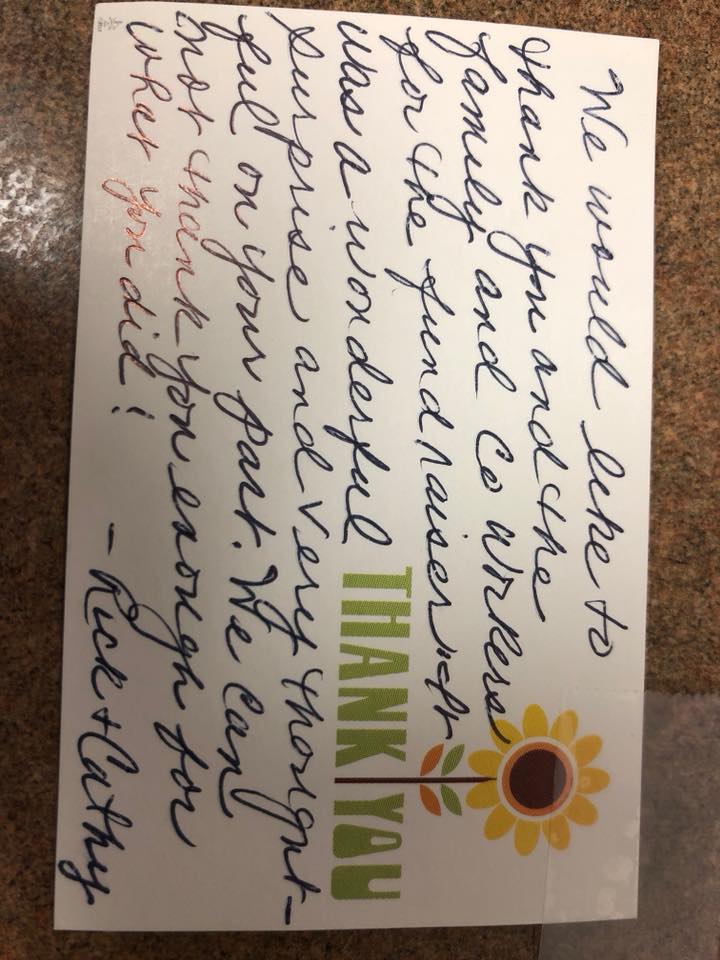 We would like to
thank you and the
family and Co workers
for the fundraiser it
was a wonderful
surprise and very thought-
ful on your part. We can
not thank you enough for
what you did!
- Rick + Cathy
THANK YOU